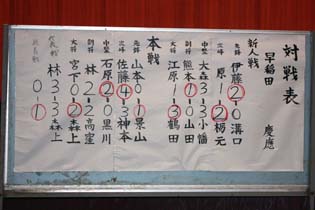 対戦表
早稲田 慶應
新人戦
先鋒 伊藤 2-0 溝口
次鋒 原 1-2 栃元
中堅 大森 3-3 小幡
副将 熊本 1-0 山田
大将 江原 1-3 鶴田
本戦
先鋒 山本 0-1 景山
次鋒 佐藤 4-3 神本
中堅 石原 2-0 黒川
副将 林 2-2 高窪
大将 宮下 0-2 森上
代表戦 林 3-3 森上
0 1